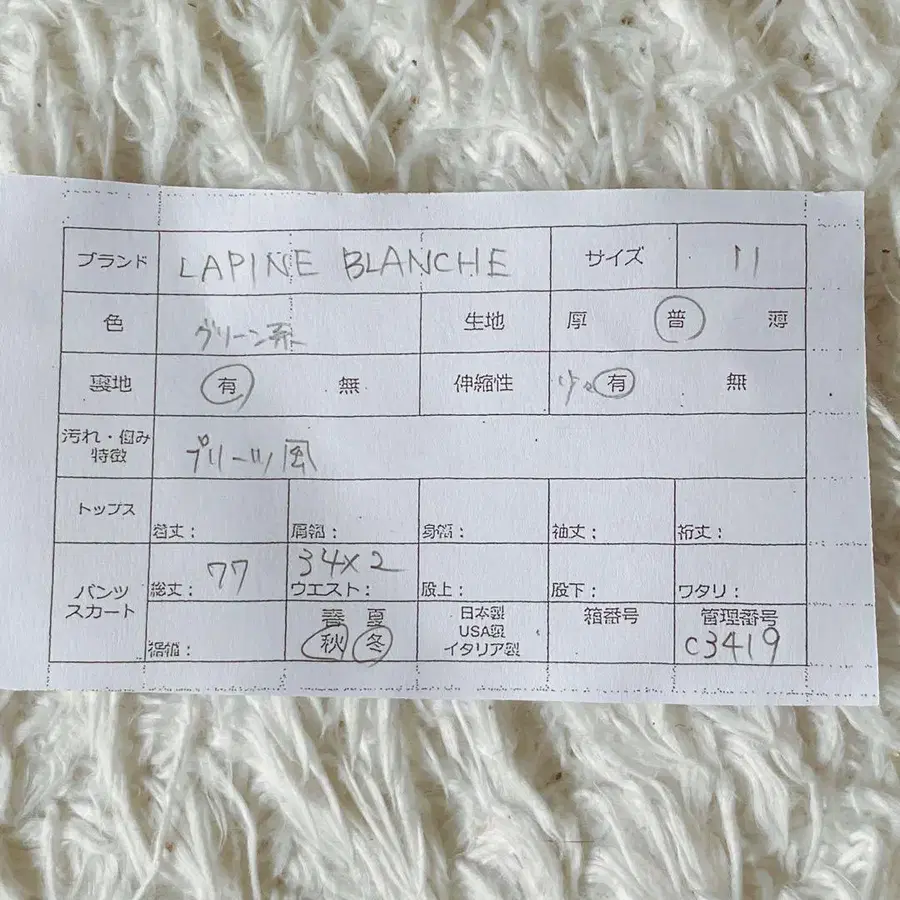 ブランド LAPINE BLANCHE サイズ 11
色 グリーン系 生地 厚 普 薄
裏地 有 無 伸縮性 少々 有 無
汚れ・傷み
特徴 プリーツ風
トップス 着丈： 肩幅： 身幅： 袖丈： 裄丈：
パンツ
スカート 総丈： 77 ウエスト： 34×2 股上： 股下： ワタリ：
裾幅： 春 夏
秋 冬
日本製
USA製
イタリア製
箱番号
管理番号
C3419